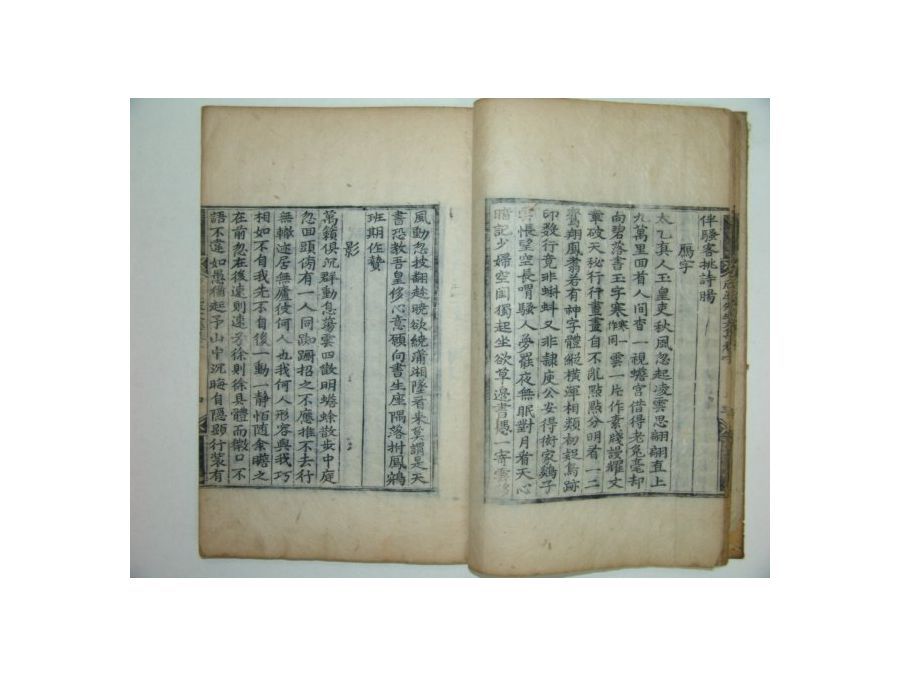 伴騷客挑詩腸
鴈字
太乙真人玉皇吏秋風忽起凌雲思翩翩直上
九萬里回首人間杳一視蟾宮借得老兎毫却
向碧落書玉字寒寒一作用雲一片作素牋謾耀文
章破天秘行行畫畫自不亂點點分明看一二
鸞翔鳳翥若有神字體縱橫渾相類初起鳥跡
卯數行竟非蝌蚪又非隷庾公安得衒家鷄子
雲悵望空長喟騷人夢罷夜無眠對月看天心
暗記少婦空閨獨起坐欲草邊書憑一寄雲
風動忽披翻趁晩欲繞瀟湘墜看來莫謂是天
書恐教吾皇侈心意願向書生座隅落拊鳳鵷
班期作贄
影
萬籟俱沉群動息蕩雲四散明蟾蜍散步中庭
忽回頭傍有一人同踟躕招之不應推不去行
無轍迹居無廬彼何人也我何人形容與我巧
相如不自我先不自後一動一靜恒随余瞻之
在前忽在後速則速芳徐則徐具體而微口不
語不違如愚猶起予山中沉晦自隱顯行藏有